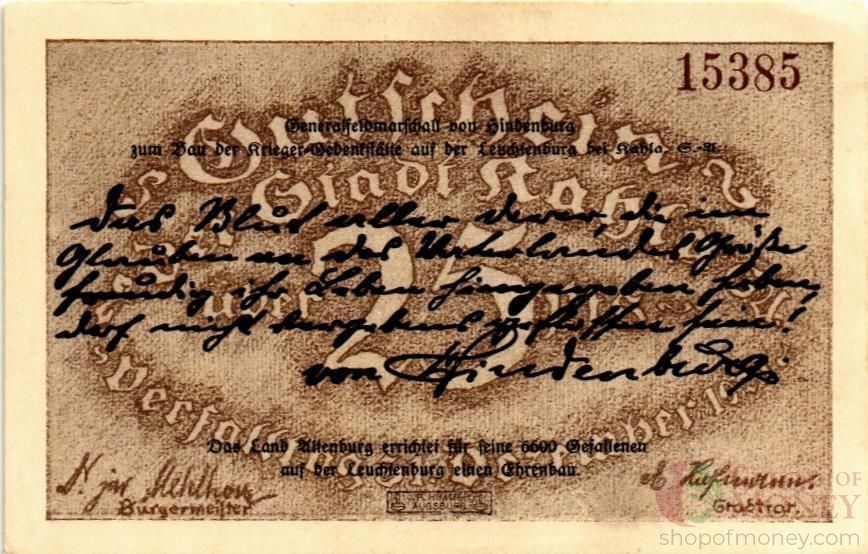 15385
Gutschein
Generalfeldmarschall von Hindenburg
zum Bau der Krieger-Gedenkstätte auf der Leuchtenburg bei Kahla, S.-A.
Stadt Kahla
Das Blut aller derer, die im
Glauben an des Vaterlandes Größe
freudig ihr Leben hingegeben haben,
darf nicht vergebens geflossen sein!
über 25
von Hindenburg
Das Land Altenburg errichtet für seine 6600 Gefallenen
auf der Leuchtenburg einen Ehrenbau.
Bürgermeister
Stadtrat.
AUGSBURG
OF
MONEY
shopofmoney.com